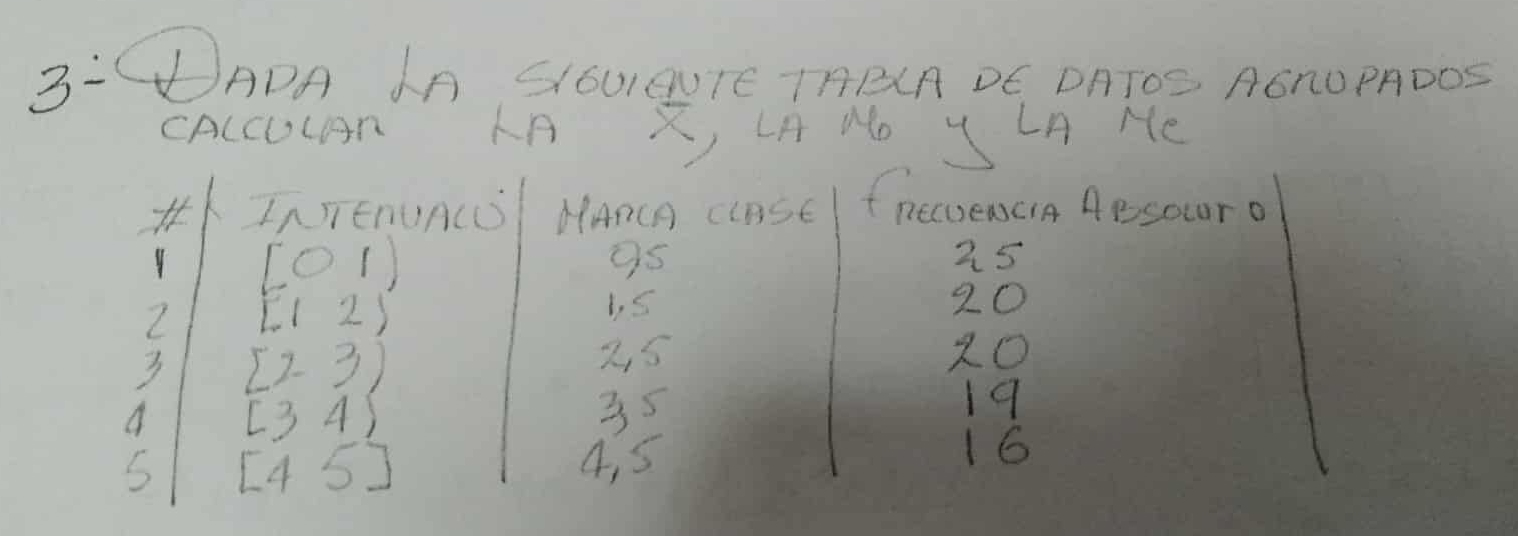 3- DADA LA SIGUIENTE TABLA DE DATOS AGRUPADOS
CALCULAR LA X̄, LA Mo y LA Me
# INTERVALO MARCA CLASE FRECUENCIA ABSOLUTO
1 [0 1) 0,5 25
2 [1 2) 1,5 20
3 [2 3) 2,5 20
4 [3 4) 3,5 19
5 [4 5] 4,5 16